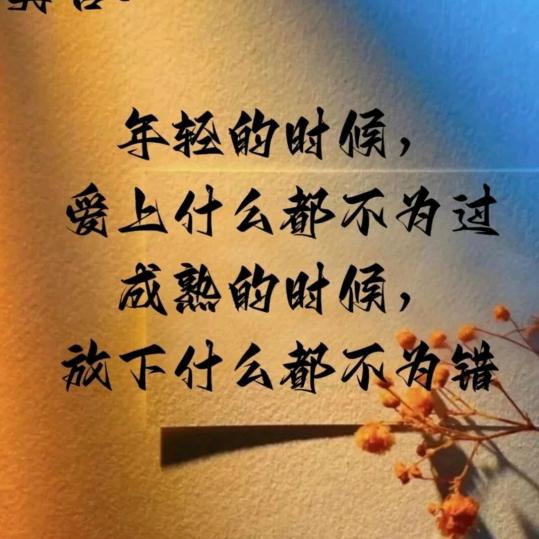 年轻的时候，
爱上什么都不为过
成熟的时候，
放下什么都不为错